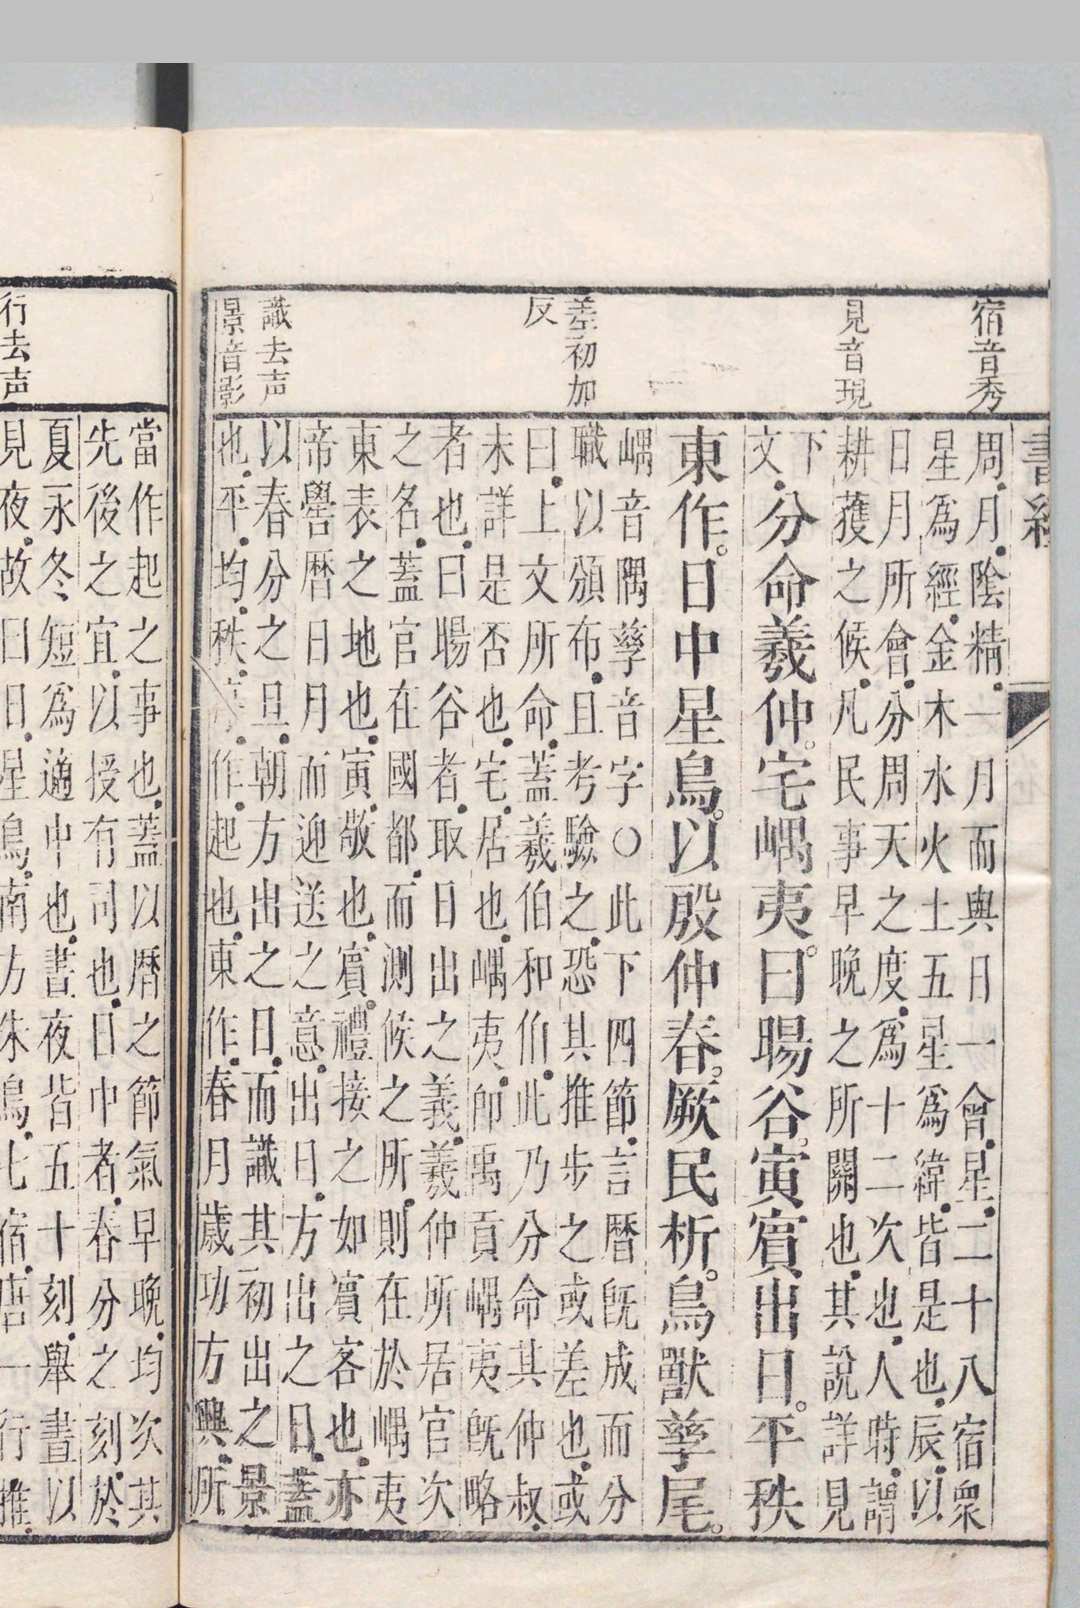 書經
宿音秀
見音現
差初加
反
識去声
景音影
周。月。陰精。一月而與日一會。星。二十八宿衆
星爲經。金木水火土五星爲緯。皆是也。辰。以
日月所會。分周天之度。爲十二次也。人時。謂
耕穫之候。凡民事早晚之所關也。其說詳見
下
文。
分命羲仲。宅嵎夷。曰暘谷。寅賓出日。平秩
東作。日中星鳥。以殷仲春。厥民析。鳥獸孳尾。
嵎音隅孳音字〇此下四節。言暦既成而分
職以頒布。且考驗之。恐其推步之或差也。或
曰。上文所命。蓋羲伯和伯。此乃分命其仲叔。
未詳是否也。宅。居也。嵎夷。卽禹貢嵎夷旣略
者也。曰暘谷者。取日出之義。羲仲所居官次
之名。蓋官在國都。而測候之所。則在於嵎夷
東表之地也。寅。敬也。賓。禮接之如賓客也。亦
帝嚳暦日月而迎送之意。出日。方出之日。蓋
以春分之旦。朝方出之日。而識其初出之景
也。平。均。秩。序。作。起也。東作。春月歲功方興。所
行去声
當作起之事也。蓋以暦之節氣早晚。均次其
先後之宜。以授有司也。日中者。春分之刻。於
夏永冬短爲適中也。晝夜皆五十刻。舉晝以
見夜。故曰日。星鳥。南方朱鳥。七宿。唐一行推。